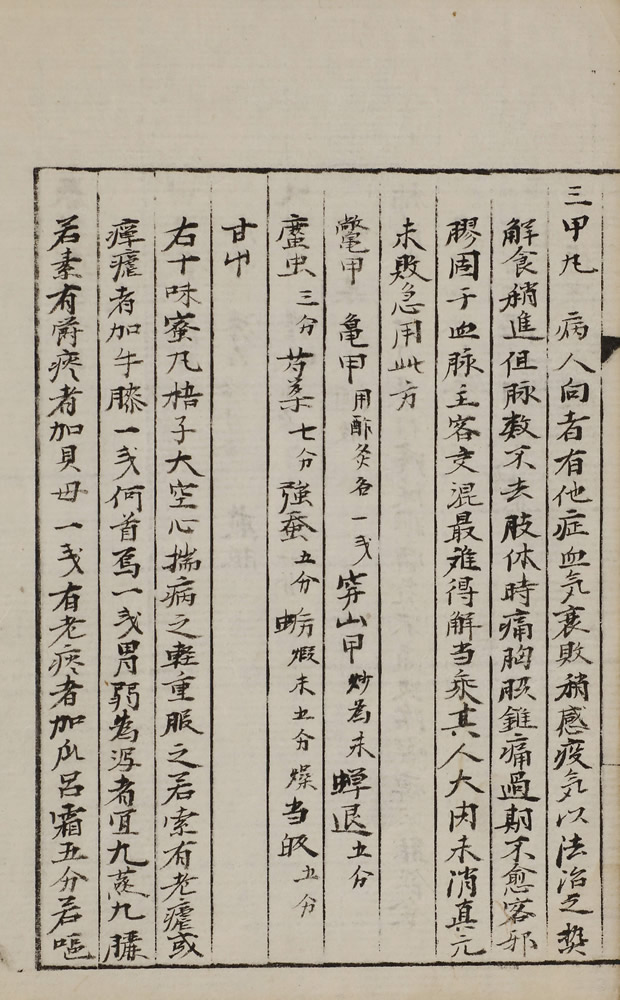 三甲丸　病人向者有他症血気衰敗稍感疫気以法治之
解食稍進但脉数不去肢体時痛胸脇錐痛過期不愈客邪
膠固于血脉主客交混最难得解当乘其人大肉未消真元
未敗急用此方
鱉甲　亀甲用酢炙各一戋穿山甲炒為末蝉退五分
䗪虫三分芍薬七分強蚕五分蛎煆末五分燥当皈五分
甘屮
右十味蜜凡梧子大空心揣病之軽重服之若索有老瘧或
瘴瘧者加牛膝一戋何首烏一戋胃弱為泻者宜九蒸九
若素有鬱痰者加貝母一戋有老痰者加瓜呂霜五分若嘔